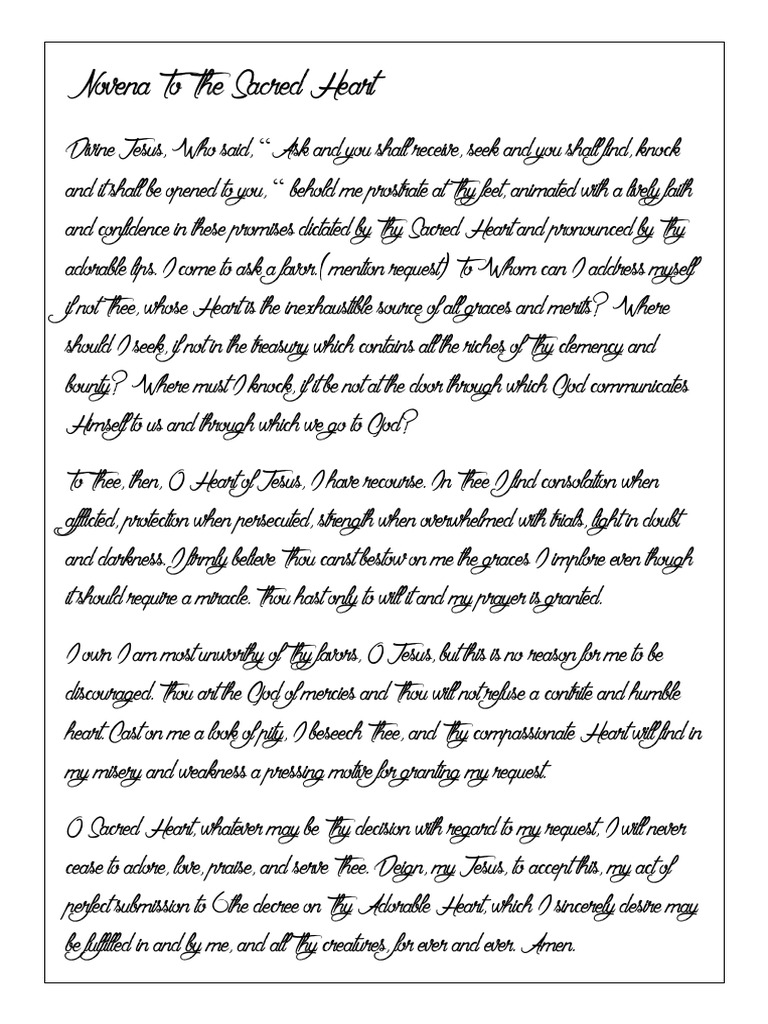 Novena To The Sacred Heart
Divine Jesus, Who said, “ Ask and you shall receive, seek and you shall find, knock
and it shall be opened to you, “ behold me prostrate at Thy feet, animated with a lively faith
and confidence in these promises dictated by Thy Sacred Heart and pronounced by Thy
adorable lips. I come to ask a favor.( mention request) To Whom can I address myself
if not Thee, whose Heart is the inexhaustible source of all graces and merits? Where
should I seek, if not in the treasury which contains all the riches of Thy clemency and
bounty? Where must I knock, if it be not at the door through which God communicates
Himself to us and through which we go to God?
To Thee, then, O Heart of Jesus, I have recourse. In Thee I find consolation when
afflicted, protection when persecuted, strength when overwhelmed with trials, light in doubt
and darkness. I firmly believe Thou canst bestow on me the graces I implore even though
it should require a miracle. Thou hast only to will it and my prayer is granted.
I own I am most unworthy of Thy favors, O Jesus, but this is no reason for me to be
discouraged. Thou art the God of mercies and Thou will not refuse a contrite and humble
heart. Cast on me a look of pity, I beseech Thee, and Thy compassionate Heart will find in
my misery and weakness a pressing motive for granting my request.
O Sacred Heart, whatever may be Thy decision with regard to my request, I will never
cease to adore, love, praise, and serve Thee. Deign, my Jesus, to accept this, my act of
perfect submission to 6the decree on Thy Adorable Heart, which I sincerely desire may
be fulfilled in and by me, and all Thy creatures, for ever and ever. Amen.